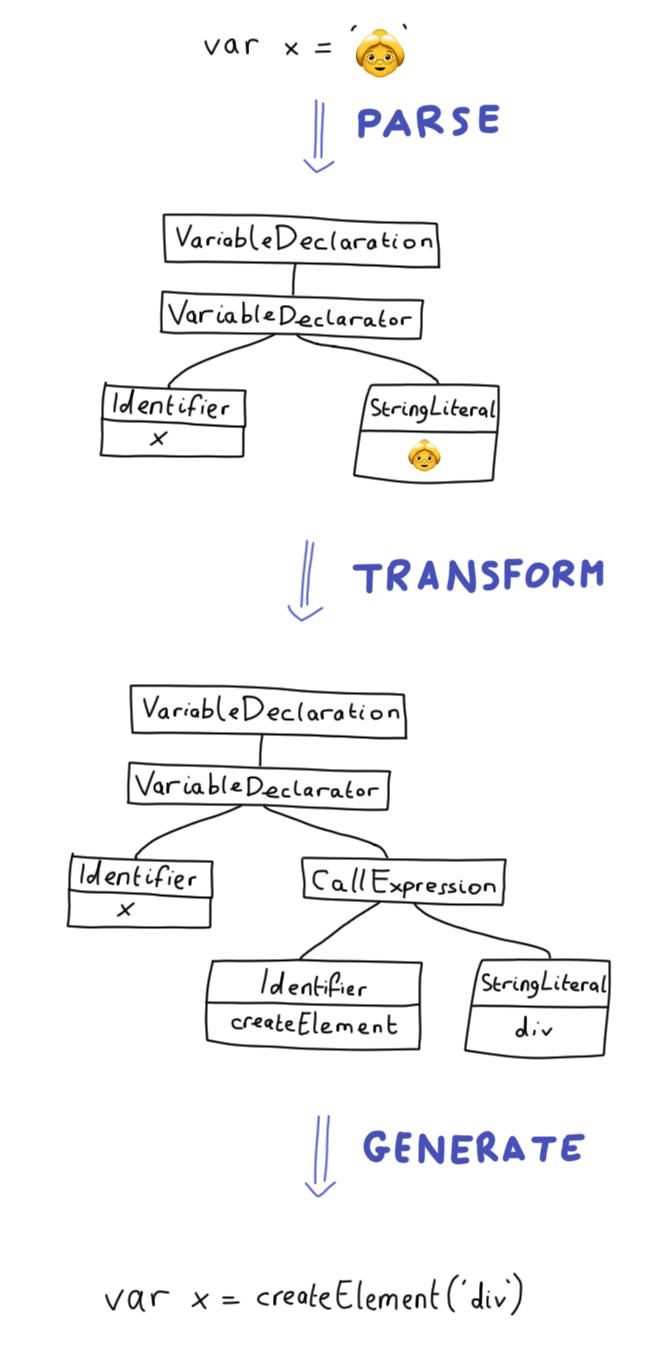 var x = '👵'
PARSE
VariableDeclaration
VariableDeclarator
Identifier
x
StringLiteral
👵
TRANSFORM
VariableDeclaration
VariableDeclarator
Identifier
x
CallExpression
Identifier
createElement
StringLiteral
div
GENERATE
var x = createElement('div')